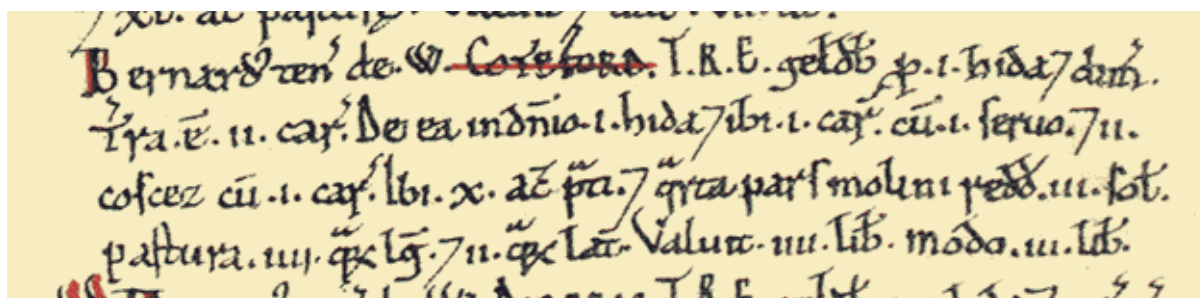 7 xl. ac̄ pasturæ. Valuit 7
Bernard' ten' de. W. Cortstone. T.R.E. geldb' p. i. hida 7 dim̃.
T'ra. ē. ii. car'. De ea in dn̄io. i. hida 7 ibi. i. car'. cū. i. seruo. 7 ii.
coscez cū. i. car'. Ibi. x. ac̄ p̃ti. 7 q̃rta pars molini redd'. iii. sol'.
pastura. iiii. q̃ꝝ lḡ. 7 ii. q̃ꝝ lat̄. Valuit. iiii. lib'. modo. iii. lib'.
T.R.E.